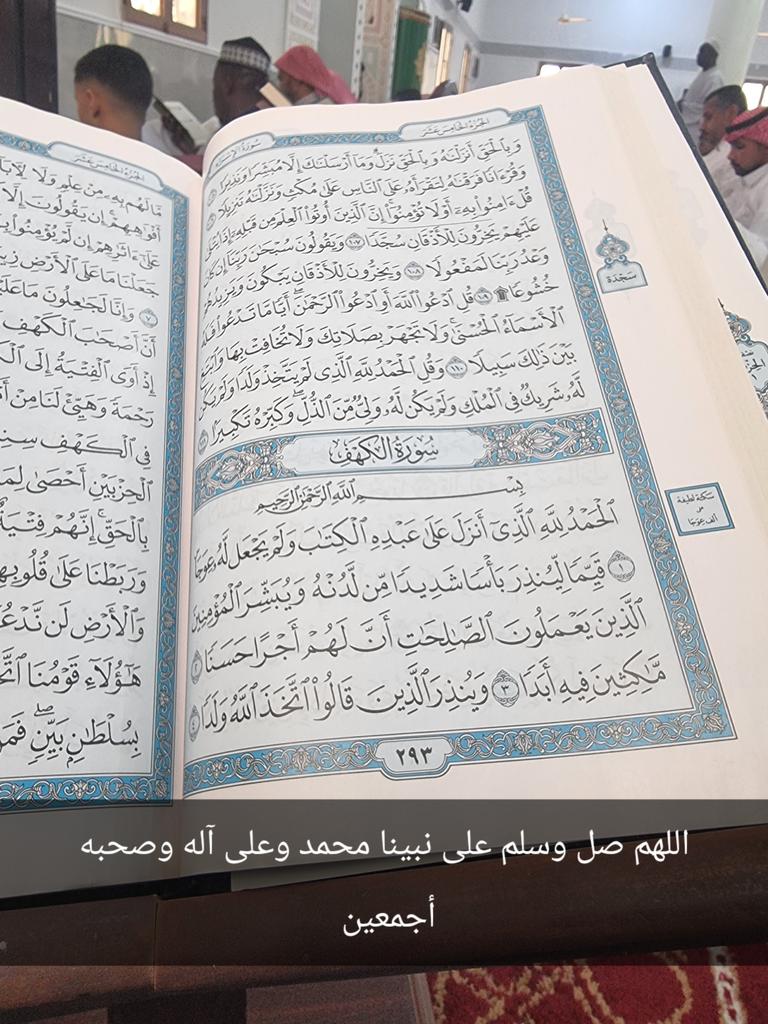 الجزء الخامس عشر
سورة الإسراء
وَبِالْحَقِّ أَنزَلْنَاهُ وَبِالْحَقِّ نَزَلَ وَمَا أَرْسَلْنَاكَ إِلَّا مُبَشِّرًا وَنَذِيرًا
وَقُرْءَانًا فَرَقْنَاهُ لِتَقْرَأَهُ عَلَى النَّاسِ عَلَىٰ مُكْثٍ وَنَزَّلْنَاهُ تَنزِيلًا
قُلْ ءَامِنُوا بِهِ أَوْ لَا تُؤْمِنُوا إِنَّ الَّذِينَ أُوتُوا الْعِلْمَ مِن قَبْلِهِ إِذَا
عَلَيْهِمْ يَخِرُّونَ لِلْأَذْقَانِ سُجَّدًا ١٠٧ وَيَقُولُونَ سُبْحَٰنَ رَبِّنَا إِن كَانَ
وَعْدُ رَبِّنَا لَمَفْعُولًا ١٠٨ وَيَخِرُّونَ لِلْأَذْقَانِ يَبْكُونَ وَيَزِيدُهُمْ
خُشُوعًا ۩ ١٠٩ قُلِ ادْعُوا اللَّهَ أَوِ ادْعُوا الرَّحْمَٰنَ أَيًّا مَّا تَدْعُوا فَلَهُ
الْأَسْمَاءُ الْحُسْنَىٰ وَلَا تَجْهَرْ بِصَلَاتِكَ وَلَا تُخَافِتْ بِهَا وَابْتَغِ
بَيْنَ ذَٰلِكَ سَبِيلًا ١١٠ وَقُلِ الْحَمْدُ لِلَّهِ الَّذِي لَمْ يَتَّخِذْ وَلَدًا وَلَمْ يَكُن
لَّهُ شَرِيكٌ فِي الْمُلْكِ وَلَمْ يَكُن لَّهُ وَلِيٌّ مِّنَ الذُّلِّ وَكَبِّرْهُ تَكْبِيرًا
سُورَةُ الْكَهْفِ
بِسْمِ اللَّهِ الرَّحْمَٰنِ الرَّحِيمِ
الْحَمْدُ لِلَّهِ الَّذِي أَنزَلَ عَلَىٰ عَبْدِهِ الْكِتَٰبَ وَلَمْ يَجْعَل لَّهُ عِوَجَا
١ قَيِّمًا لِّيُنذِرَ بَأْسًا شَدِيدًا مِّن لَّدُنْهُ وَيُبَشِّرَ الْمُؤْمِنِينَ
الَّذِينَ يَعْمَلُونَ الصَّٰلِحَٰتِ أَنَّ لَهُمْ أَجْرًا حَسَنًا ٢
مَّٰكِثِينَ فِيهِ أَبَدًا ٣ وَيُنذِرَ الَّذِينَ قَالُوا اتَّخَذَ اللَّهُ وَلَدًا ٤
٢٩٣
سجدة
سكتة لطيفة
على
ألف عوجا
الجزء الخامس عشر
مَّا لَهُم بِهِ مِنْ عِلْمٍ وَلَا لِآبَا
أَفْوَاهِهِمْ إِن يَقُولُونَ إِلَّا
عَلَىٰ ءَاثَٰرِهِمْ إِن لَّمْ يُؤْمِنُوا
جَعَلْنَا مَا عَلَى الْأَرْضِ
٧ وَإِنَّا لَجَٰعِلُونَ مَا عَلَيْهَا
أَنَّ أَصْحَٰبَ الْكَهْفِ
إِذْ أَوَى الْفِتْيَةُ إِلَى
رَحْمَةً وَهَيِّئْ لَنَا مِنْ
فِي الْكَهْفِ
الْحِزْبَيْنِ أَحْصَىٰ لِمَا
بِالْحَقِّ إِنَّهُمْ فِتْيَةٌ
وَرَبَطْنَا عَلَىٰ قُلُوبِهِمْ
وَالْأَرْضِ لَن نَّدْعُوَ
هَٰؤُلَاءِ قَوْمُنَا
بِسُلْطَٰنٍ بَيِّنٍ فَمَنْ
اللهم صل وسلم على نبينا محمد وعلى آله وصحبه
أجمعين